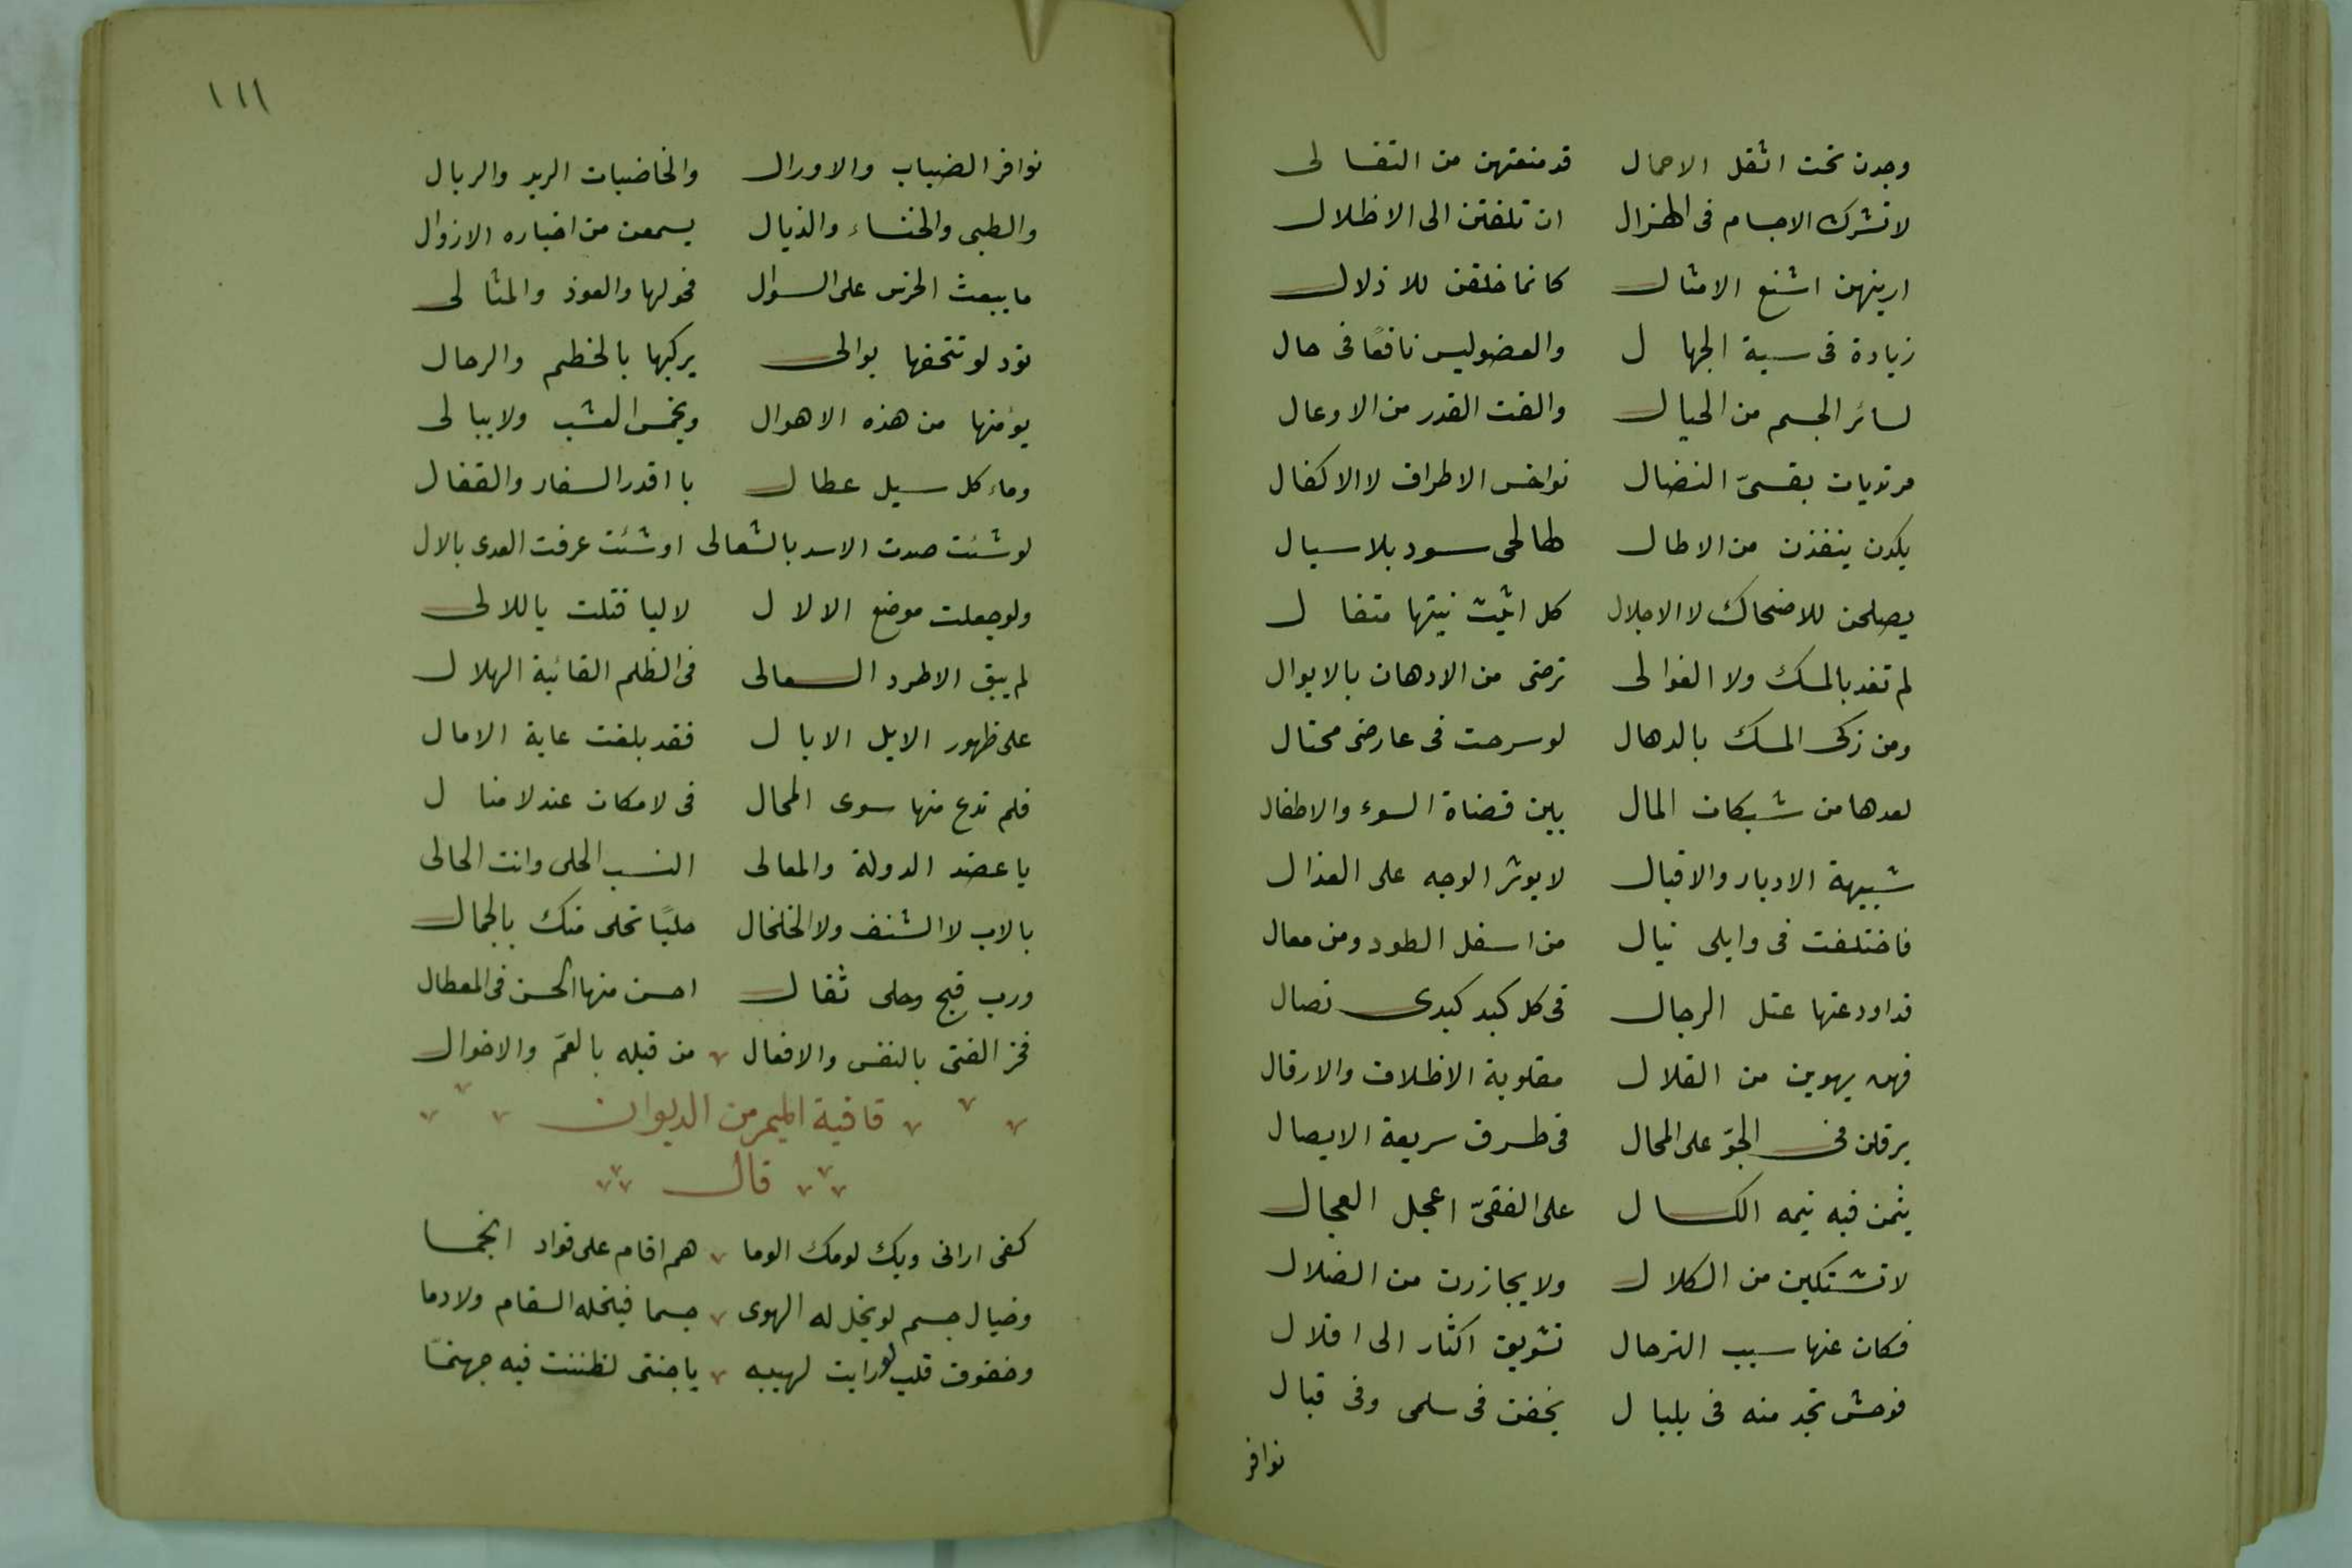 وجدن تحت اثقل الاحمال قد منعتهن من التفالى
لا تشرك الاجسام فى الهزال ان تلفتن الى الاظلال
ارينهن اشنع الامثال كانما خلقن للاذلال
زيادة فى سبة الجهال والعضو ليس نافعًا فى حال
لسائر الجسم من الخيال والفت الفدر من الاوعال
مرتديات بقسىّ الضال نواخس الاطراف لا الاكفال
يكدن ينفذن من الاطال لها لحى سود بلا سبال
يصلحن للاضحاك لا الاجلال كل اثيث نبتها متفال
لم تغد بالمسك ولا الغوالى ترضى من الادهان بالابوال
ومن زكى المسك بالدهال لو سرحت فى عارضى محتال
لعدها من شبكات المال بين قضاة السوء والاطفال
شبيهة الادبار والاقبال لا يوثر الوجه على القذال
فاختلفت فى وابلى نبال من اسفل الطود ومن معال
قد اودعتها عتل الرجال فى كل كبد كبدى نصال
فهن يهوين من القلال مقلوبة الاظلاف والارقال
يرقلن فى الجوّ على المحال فى طرق سريعة الايصال
ينمن فيه نيمه الكسال على القفىّ اعجل العجال
لا تشتكين من الكلال ولا يجازرن من الضلال
فكان عنها سبب الترحال تشويق اكثار الى اقلال
فوحش نجد منه فى بلبال يخفن فى سلمى وفى قبال
نوافر
١١١
نوافر الضباب والاورال والخاضبات الربد والربال
والظبى والخنساء والذيال يسمعن من اخباره الازوال
ما يبعث الخرس على السوال فحولها والعوذ والمتالى
تود لو تتحفها بوالى يركبها بالخطم والرحال
يؤمنها من هذه الاهوال ويخمس العشب ولا يبالى
وماء كل سيل عطال يا اقدر السفار والقفال
لو شئت صدت الاسد بالثعالى او شئت غرقت العدى بالال
ولو جعلت موضع الالال لاليا قتلت ياللالى
لم يبق الا طرد السعالى فى الظلم الغائبة الهلال
على ظهور الابل الابال فقد بلغت غاية الامال
فلم تدع منها سوى المحال فى لا مكان عند لا منال
يا عضد الدولة والمعالى النسب الحلى وانت الحالى
بالاب لا الشنف ولا الخلخال حليًا تحلى منك بالجمال
ورب قبح وحلى ثقال احسن منها الحسن فى المعطال
فخر الفتى بالنفس والافعال من قبله بالعمّ والاخوال
قافية الميم من الديوان
قال
كفى ارانى ويك لومك الوما هم اقام على فواد انجما
وخيال جسم لو يخل له الهوى جسما فينحله السقام ولا دما
وخفوق قلب لو رايت لهيبه يا جنتى لظننت فيه جهنمّا